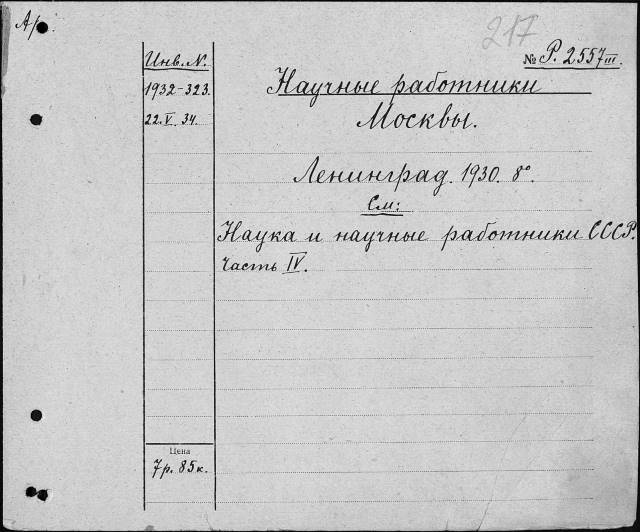 А/
217
№ Р. 2557 III.
Инв. N.
1932-323.
22.V.34.
Научные работники
Москвы.
Ленинград. 1930. 8°.
См:
Наука и научные работники СССР.
Часть IV.
Цена
7 р. 85 к.